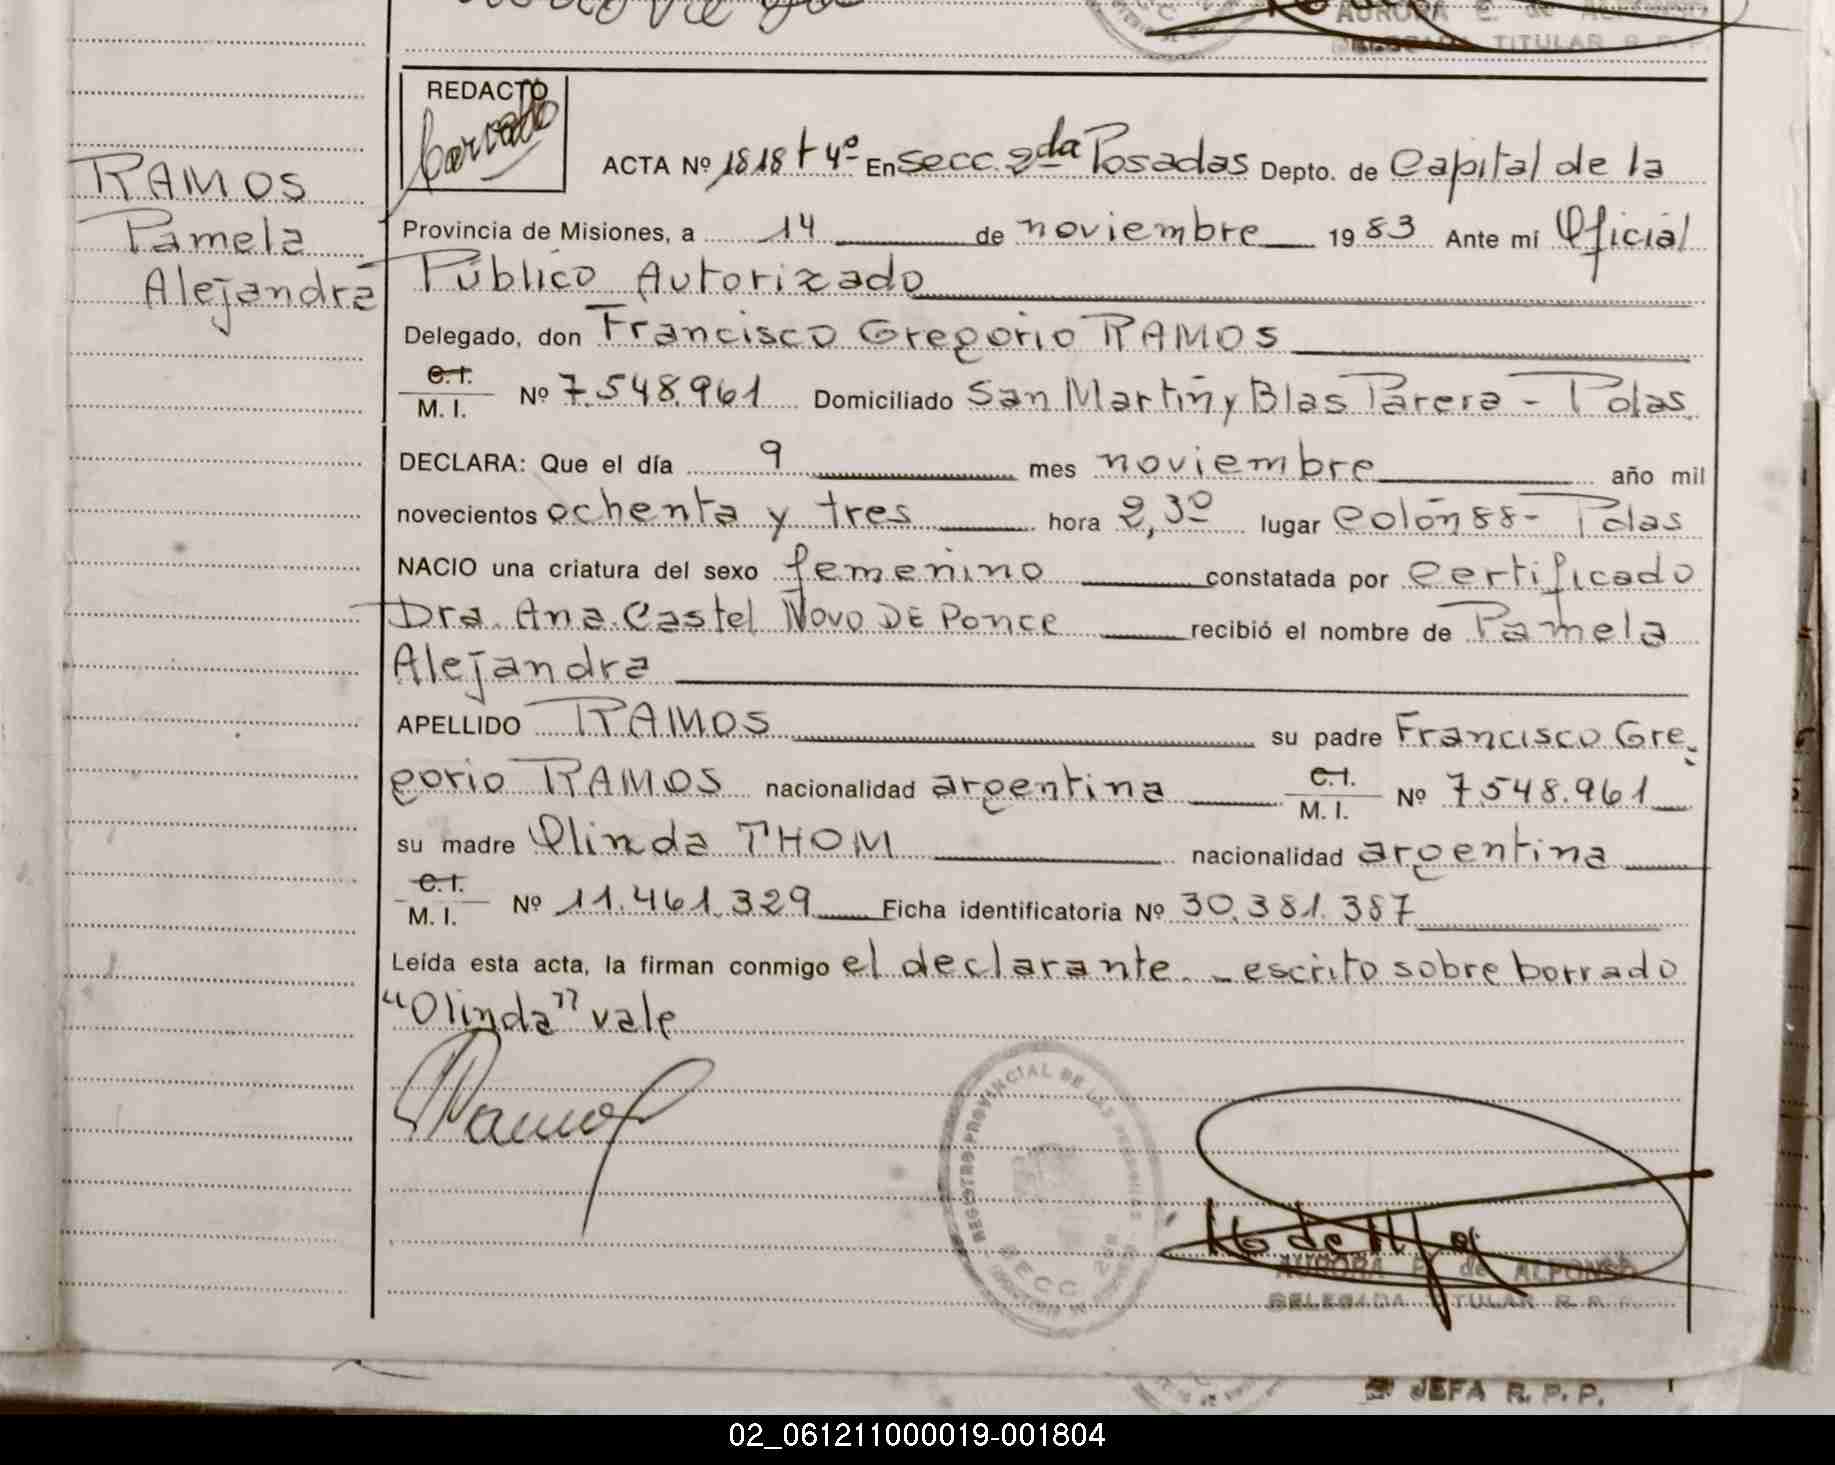 AURORA E. de ALFONSO
DELEGADA TITULAR R. P. P.
REDACTO
RAMOS
Pamela
Alejandra
ACTA Nº 1818 t 4º En Secc. 2da Posadas Depto. de Capital de la
Provincia de Misiones, a 14 de noviembre 1983 Ante mi Oficial
Público Autorizado
Delegado, don Francisco Gregorio RAMOS
C.I.
M. I. Nº 7.548.961 Domiciliado San Martin y Blas Parera - Pdas
DECLARA: Que el día 9 mes noviembre año mil
novecientos ochenta y tres hora 2,30 lugar Colón 88 - Pdas
NACIO una criatura del sexo femenino constatada por Certificado
Dra. Ana Castel Novo DE Ponce recibió el nombre de Pamela
Alejandra
APELLIDO RAMOS su padre Francisco Gre-
gorio RAMOS nacionalidad argentina C.I. M. I. Nº 7.548.961
su madre Olinda THOM nacionalidad argentina
C.I.
M. I. Nº 11.461.329 Ficha identificatoria Nº 30.381.387
Leída esta acta, la firman conmigo el declarante. - escrito sobre borrado
"Olinda" vale
Ramos
REGISTRO PROVINCIAL DE LAS PERSONAS
SECC. 2da
AURORA E. de ALFONSO
DELEGADA TITULAR R. P. P.
JEFA R. P. P.
02_061211000019-001804